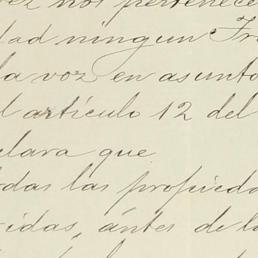 vez nos pertenece
dad ningun Tra
la voz en asunto
l artículo 12 del
clara que
das las propieda
ridas, ántes de la